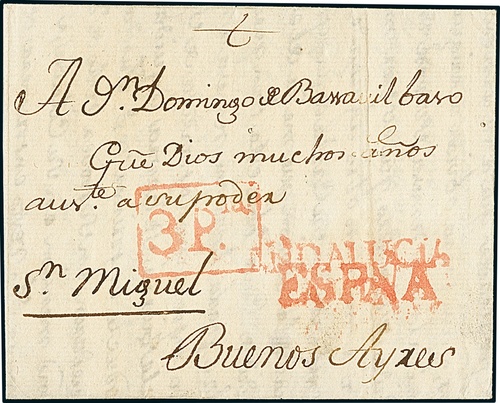 A Dn. Domingo de Barrail baso
Gue Dios muchos años
aus.te a su poder
3P.
ANDALUCIA
Sn. Miguel
ESPNA
Buenos Ayres